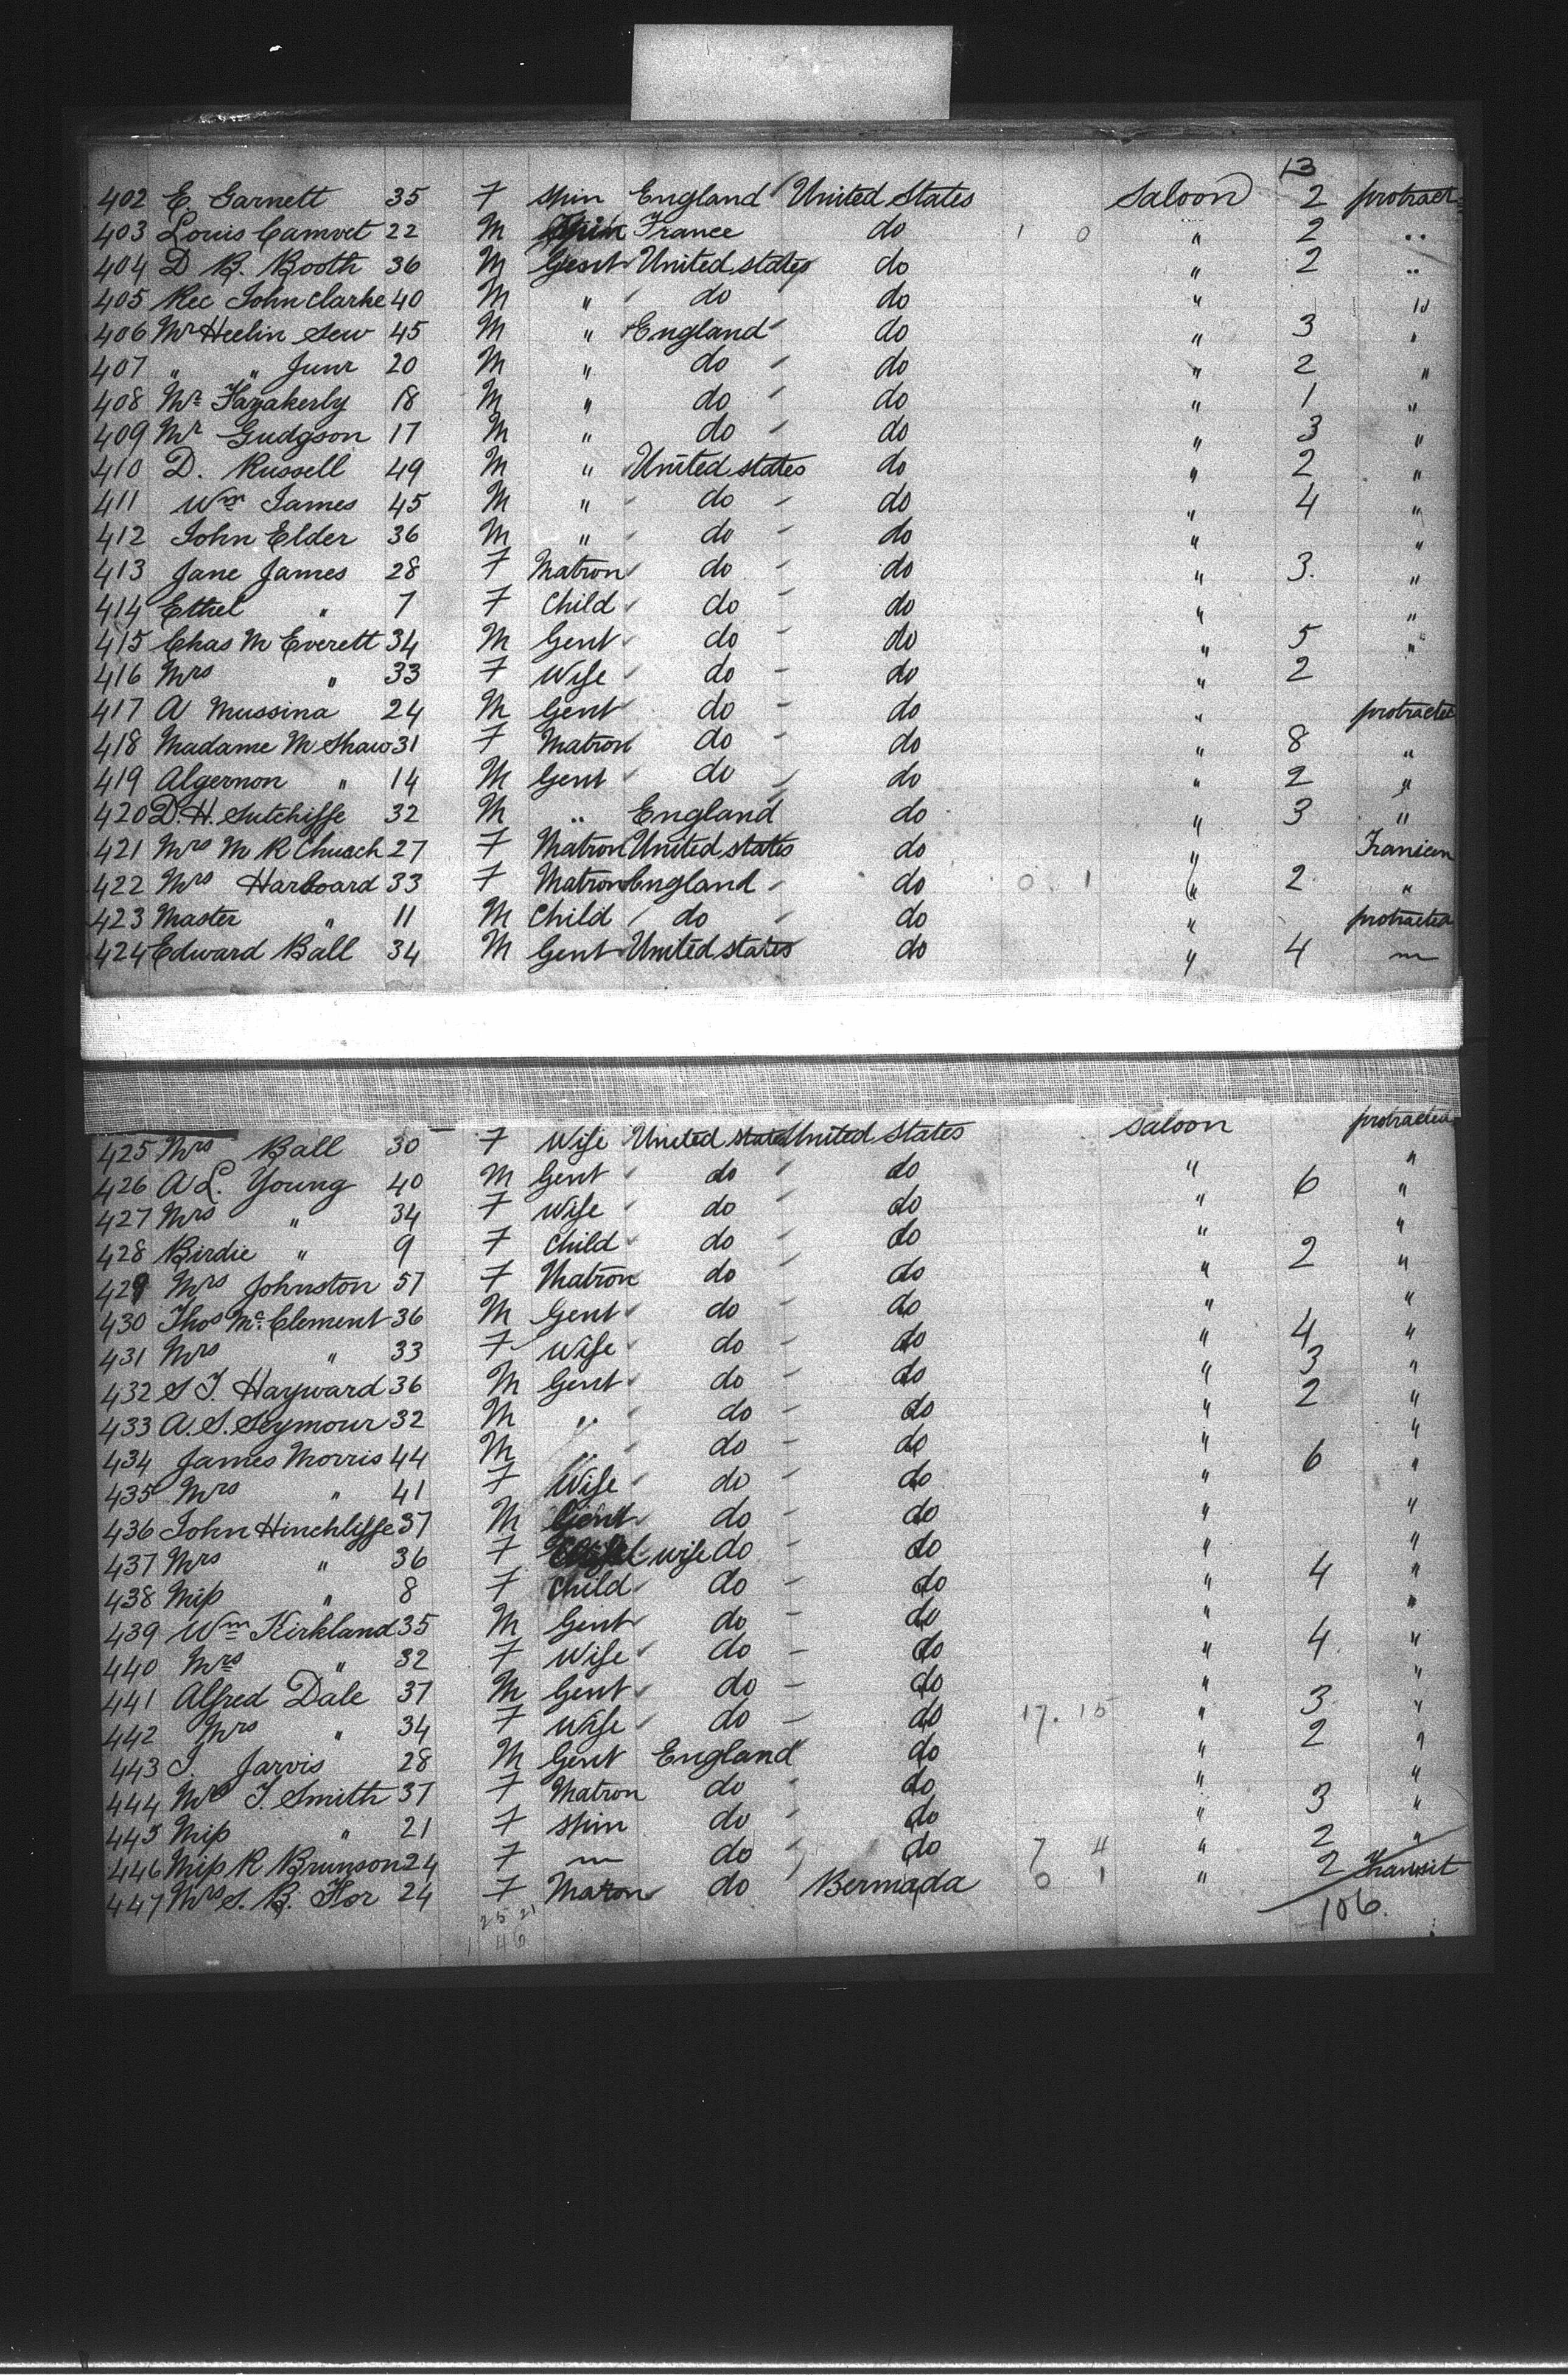 13
402 E. Garnett 35 F Spin England United States Saloon 2 protract
403 Louis Camvet 22 M France do 1 0 " 2 "
404 D B. Booth 36 M Gent United states do " 2 "
405 Rec John Clarke 40 M " do do " "
406 Mr Heelin Sew 45 M " England do " 3 "
407 " " Junr 20 M " do do " 2 "
408 Mr Fazakerly 18 M " do do " 1 "
409 Mr Gudgson 17 M " do do " 3 "
410 D. Russell 49 M " United states do " 2 "
411 Wm James 45 M " do do " 4 "
412 John Elder 36 M " do do " "
413 Jane James 28 F Matron do do " 3. "
414 Ethel " 7 F Child do do " "
415 Chas M Everett 34 M Gent do do " 5 "
416 Mrs " 33 F Wife do do " 2
417 A Mussina 24 M Gent do do " protracted
418 Madame M Shaw 31 F Matron do do " 8 "
419 Algernon " 14 M Gent do do " 2 "
420 D. H. Sutchiffe 32 M " England do " 3 "
421 Mrs M R Church 27 F Matron United states do "
422 Mrs Harboard 33 F Matron England do 0 1 " 2 "
423 Master " 11 M Child do do " protracted
424 Edward Ball 34 M Gent United states do " 4 "
425 Mrs Ball 30 F Wife United states United States saloon protracted
426 A L. Young 40 M Gent do do " 6 "
427 Mrs " 34 F Wife do do " "
428 Birdie " 9 F Child do do " 2 "
429 Mrs Johnston 57 F Matron do do " "
430 Thos Mc. Clement 36 M Gent do do " "
431 Mrs " 33 F Wife do do " 4 "
432 S T. Hayward 36 M Gent do do " 3 "
433 A. S. Seymour 32 M " do do " 2 "
434 James Morris 44 M " do do " 6 "
435 Mrs " 41 F Wife do do " "
436 John Hinchliffe 37 M Gent do do " "
437 Mrs " 36 F wife do do " "
438 Miss " 8 F Child do do " 4 "
439 Wm Kirkland 35 M Gent do do " "
440 Mrs " 32 F Wife do do " 4 "
441 Alfred Dale 37 M Gent do do " "
442 Mrs " 34 F Wife do do 17. 15 " 3 "
443 J. Jarvis 28 M Gent England do " 2 "
444 Mrs T. Smith 37 F Matron do do " "
445 Miss " 21 F Spin do do " 3 "
446 Miss R Brunson 24 F " do do 7 4 " 2 "
447 Mrs S. B. 24 F Matron do Bermada 0 1 " 2 Transit
25 21
1 46
106.